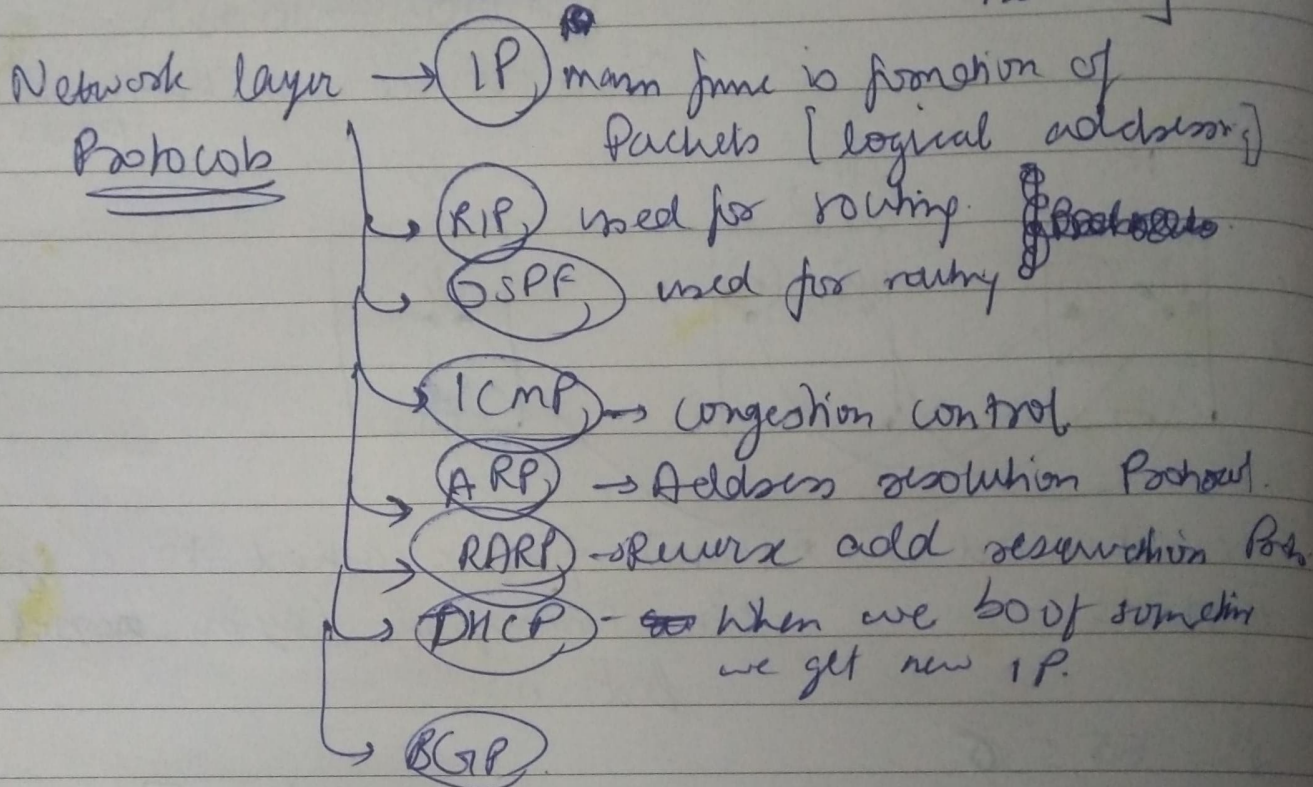 Network layer → IP main func is formation of
Protocols Packets [logical addresses]
RIP used for routing.
OSPF used for routing
ICMP → Congestion control
ARP → Address resolution Protocol.
RARP → Reverse add reservation
DHCP - When we boot sometim
we get new IP.
BGP